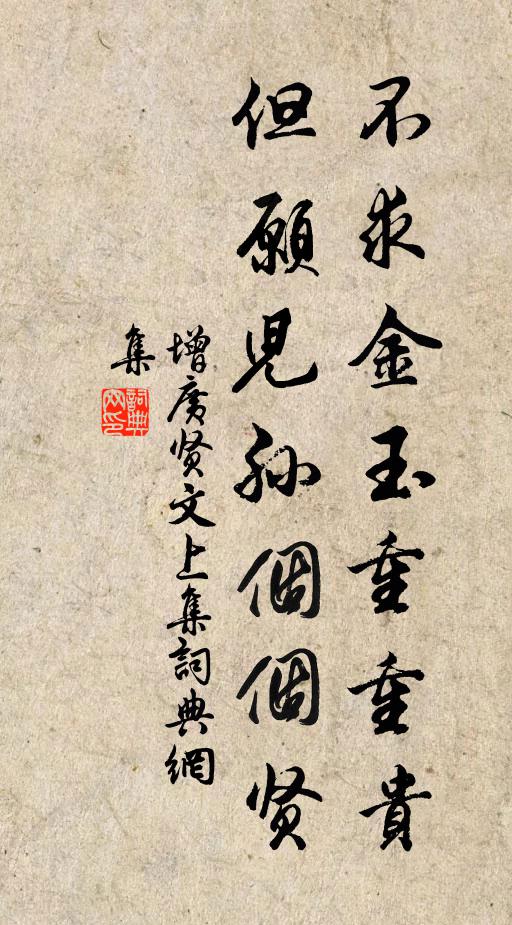 不求金玉重重貴
但願兒孫個個贤
增广贤文上集詞典網
集
詞典
网印